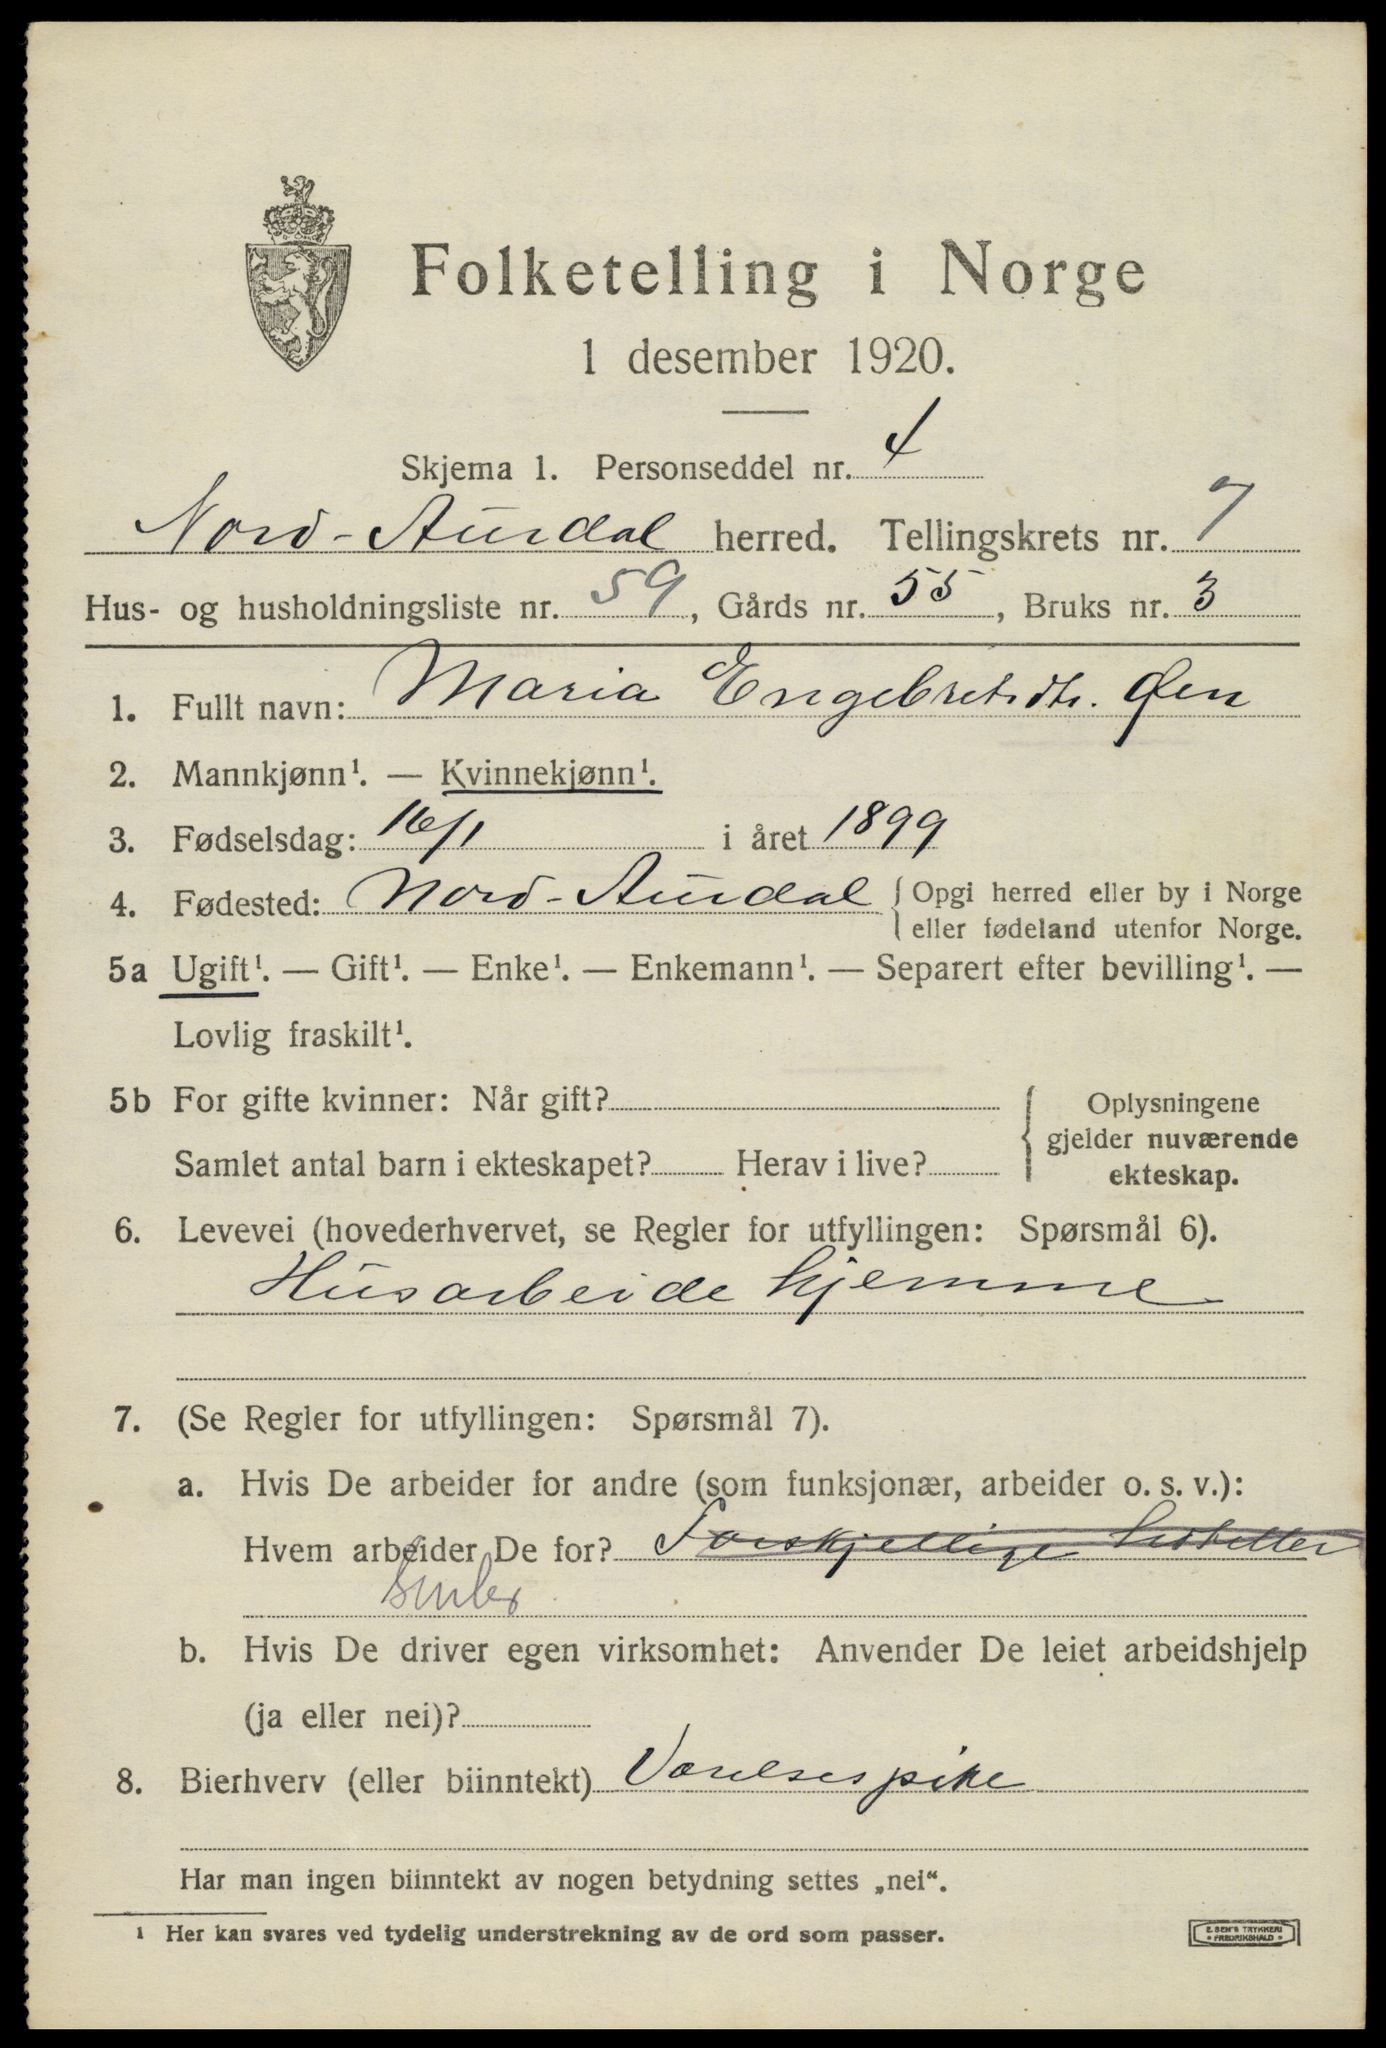 Folketelling i Norge
1 desember 1920.
Skjema 1. Personseddel nr. 4
Nord-Aurdal herred. Tellingskrets nr. 7
Hus- og husholdningsliste nr. 59, Gårds nr. 55, Bruks nr. 3
1. Fullt navn: Maria Engebretsdtr. Øen
2. Mannkjønn¹. — Kvinnekjønn¹.
3. Fødselsdag: 16/1 i året 1899
4. Fødested: Nord-Aurdal { Opgi herred eller by i Norge
eller fødeland utenfor Norge.
5a Ugift¹. — Gift¹. — Enke¹. — Enkemann¹. — Separert efter bevilling¹. —
Lovlig fraskilt¹.
5b For gifte kvinner: Når gift?
Samlet antal barn i ekteskapet? Herav i live?
Oplysningene
gjelder nuværende
ekteskap.
6. Levevei (hovederhvervet, se Regler for utfyllingen: Spørsmål 6).
Husarbeide hjemme
7. (Se Regler for utfyllingen: Spørsmål 7).
a. Hvis De arbeider for andre (som funksjonær, arbeider o. s. v.):
Hvem arbeider De for? Forskjellige
b. Hvis De driver egen virksomhet: Anvender De leiet arbeidshjelp
(ja eller nei)?
8. Bierhverv (eller biinntekt) Værelsespike
Har man ingen biinntekt av nogen betydning settes „nei“.
¹ Her kan svares ved tydelig understrekning av de ord som passer.
E. SEM'S TRYKKERI
FREDRIKSHALD